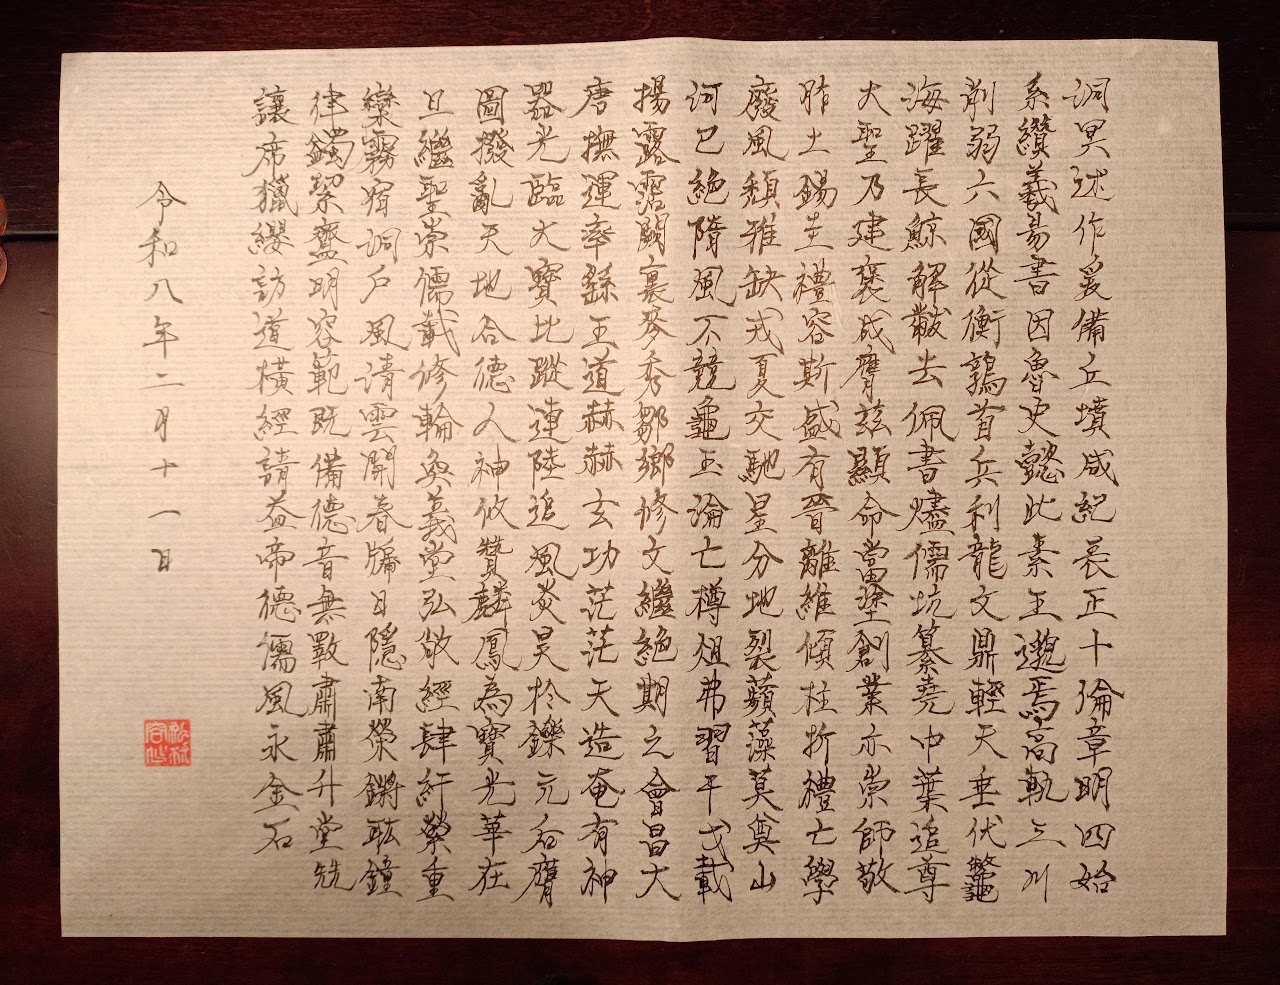 洞冥述作爰備丘墳咸紀表正十倫章明四始
系纘羲易書因魯史懿此素王邈焉高軌三川
削弱六國從衡鶉首兵利龍文鼎輕天垂伏鼈
海躍長鯨解黻去佩書燼儒坑纂堯中葉追尊
大聖乃建褒成膺茲顯命當塗創業亦崇師敬
胙土錫圭禮容斯盛有晉離維傾柱折禮亡學
廢風頹雅缺戎夏交馳星分地裂蘋藻莫奠山
河已絕隋風不競龜玉淪亡樽俎弗習干戈載
揚露霑闕裏麥秀鄒鄉修文繼絕期之會昌大
唐撫運率繇王道赫赫玄功茫茫天造奄有神
器光臨大寶比蹤連陸追風炎昊於鑠元后膺
圖撥亂天地合德人神攸贊麟鳳為寶光華在
旦繼聖崇儒載修輪奐義堂弘敞經肆紆縈重
欒霧宿洞戶風清雲開春牖日隱南榮鏘耾鐘
律蠲絜齍明容範既備德音無斁肅肅升堂兟
讓席獵纓訪道橫經請益帝德儒風永金石
令和八年二月十一日